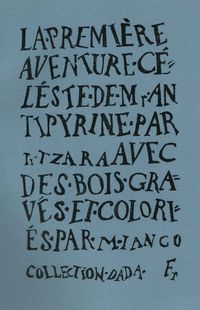 LA·PREMIÈRE
AVENTURE·CÉ=
LÉSTE·DE·Mr·AN
TIPYRINE·PAR
Tr·TZARA AVEC
DES·BOIS·GRA=
VÉS·ET·COLORI=
ÉS·PAR·M·IANCO
COLLECTION·DADA·